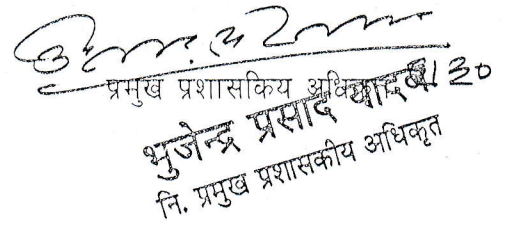 प्रमुख प्रशासकिय अधिकृत
भुजेन्द्र प्रसाद यादव
नि. प्रमुख प्रशासकीय अधिकृत